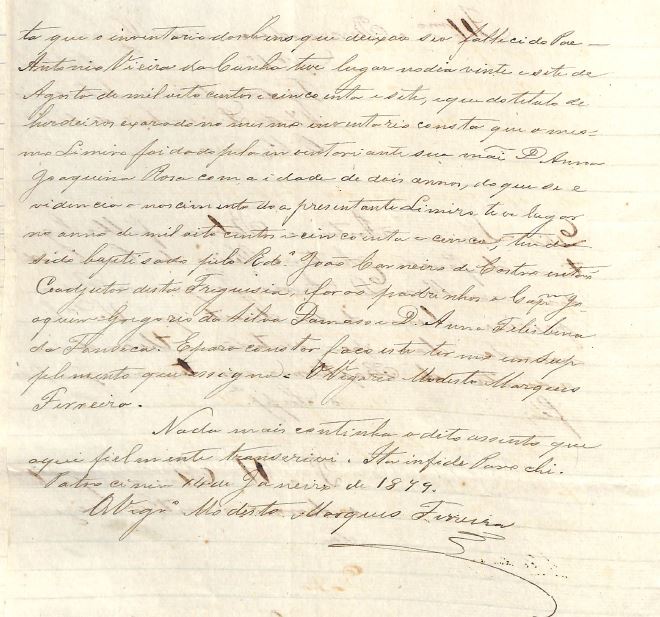 ta que o inventario dos bens que deixou seo fallecido Pae
Antonio Vieira da Cunha teve lugar no dia vinte e sete de
Agosto de mil oito centos e cincoenta e sete, e que do titulo de
herdeiros exarado no mesmo inventario consta que o mes-
mo Limirio foi dado pela inventariante sua mãi D. Anna
Joaquina Rosa com a idade de dois annos, do que se e
videncia o nascimento do apresentante Limirio teve lugar
no anno de mil oito centos e cincoenta e cinco, tendo
sido baptisado pelo João Carneiro de Castro então
Coadjutor desta Freguisia, e forão padrinhos o Capm Jo-
aquim Gregorio da Silva Damaso e D. Anna Felisbina
da Fonseca. E para constar faço este termo em sup
plemento que assigno. O Vigario Modesto Marques
Ferreira.
Nada mais continha o dito assento que
aqui fielmente transcrevi. Ita in fide Parochi.
Patrocinio 14 de Janeiro de 1879.
O Vigro Modesto Marques Ferreira